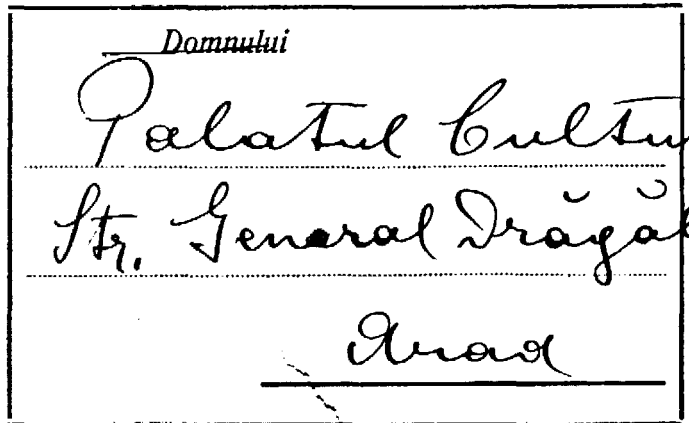 Domnului
Palatul Cultu
Str. General Drăgăl
Arad